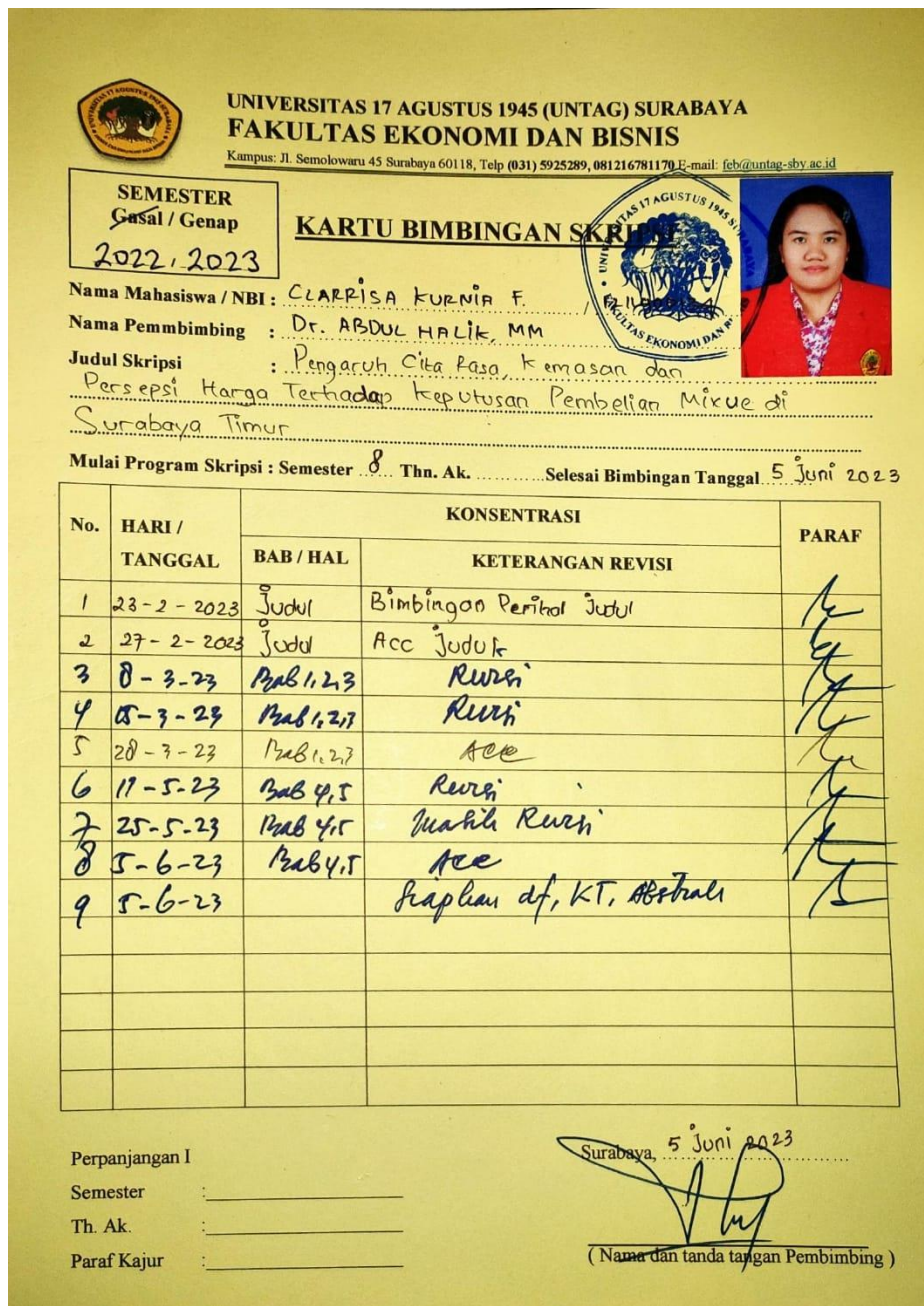 UNIVERSITAS 17 AGUSTUS 1945 (UNTAG) SURABAYA
FAKULTAS EKONOMI DAN BISNIS
Kampus: Jl. Semolowaru 45 Surabaya 60118, Telp (031) 5925289, 081216781170 E-mail: feb@untag-sby.ac.id
SEMESTER
Gasal / Genap
2022, 2023
KARTU BIMBINGAN SKRIPSI
Nama Mahasiswa / NBI : CLARRISA KURNIA F. /
Nama Pemmbimbing : Dr. ABDUL HALIK, MM
Judul Skripsi : Pengaruh Cita Rasa, Kemasan dan
Persepsi Harga Terhadap Keputusan Pembelian Mixue di
Surabaya Timur
Mulai Program Skripsi : Semester 8 Thn. Ak. ........... Selesai Bimbingan Tanggal 5 Juni 2023
No. HARI / TANGGAL KONSENTRASI PARAF
BAB / HAL KETERANGAN REVISI
1 23 - 2 - 2023 Judul Bimbingan Perihal Judul
2 27 - 2 - 2023 Judul Acc Judul
3 8 - 3 - 23 Bab 1,2,3 Revisi
4 15 - 3 - 23 Bab 1,2,3 Revisi
5 28 - 3 - 23 Bab 1,2,3 Acc
6 - 5 - 23 Bab 4,5 Revisi
7 25 - 5 - 23 Bab 4,5 Masih Revisi
8 5 - 6 - 23 Bab 4,5 Acc
9 5 - 6 - 23 Siapkan df, KT, Abstrak
Perpanjangan I
Semester :
Th. Ak. :
Paraf Kajur :
Surabaya, 5 Juni 2023
( Nama dan tanda tangan Pembimbing )